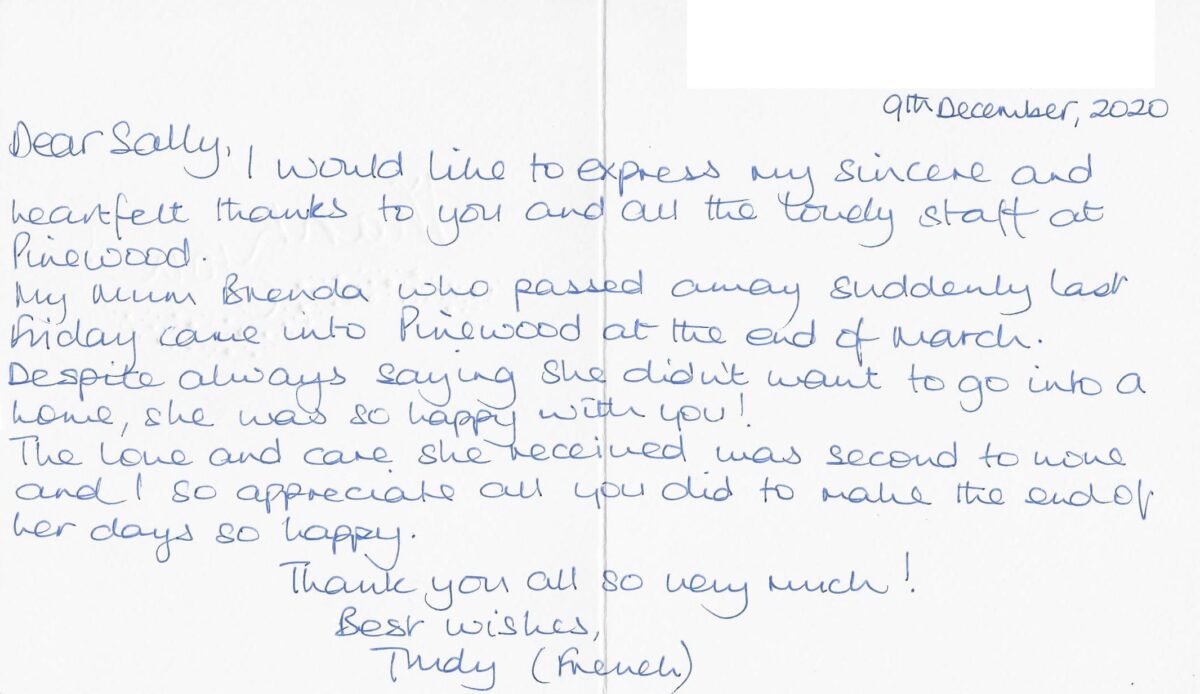 9th December, 2020
Dear Sally,
I would like to express my sincere and
heartfelt thanks to you and all the lovely staff at
Pinewood.
My Mum Brenda who passed away suddenly last
Friday came into Pinewood at the end of March.
Despite always saying she didn't want to go into a
home, she was so happy with you!
The love and care she received was second to none
and I so appreciate all you did to make the end of
her days so happy.
Thank you all so very much!
Best wishes,
Trudy (French)